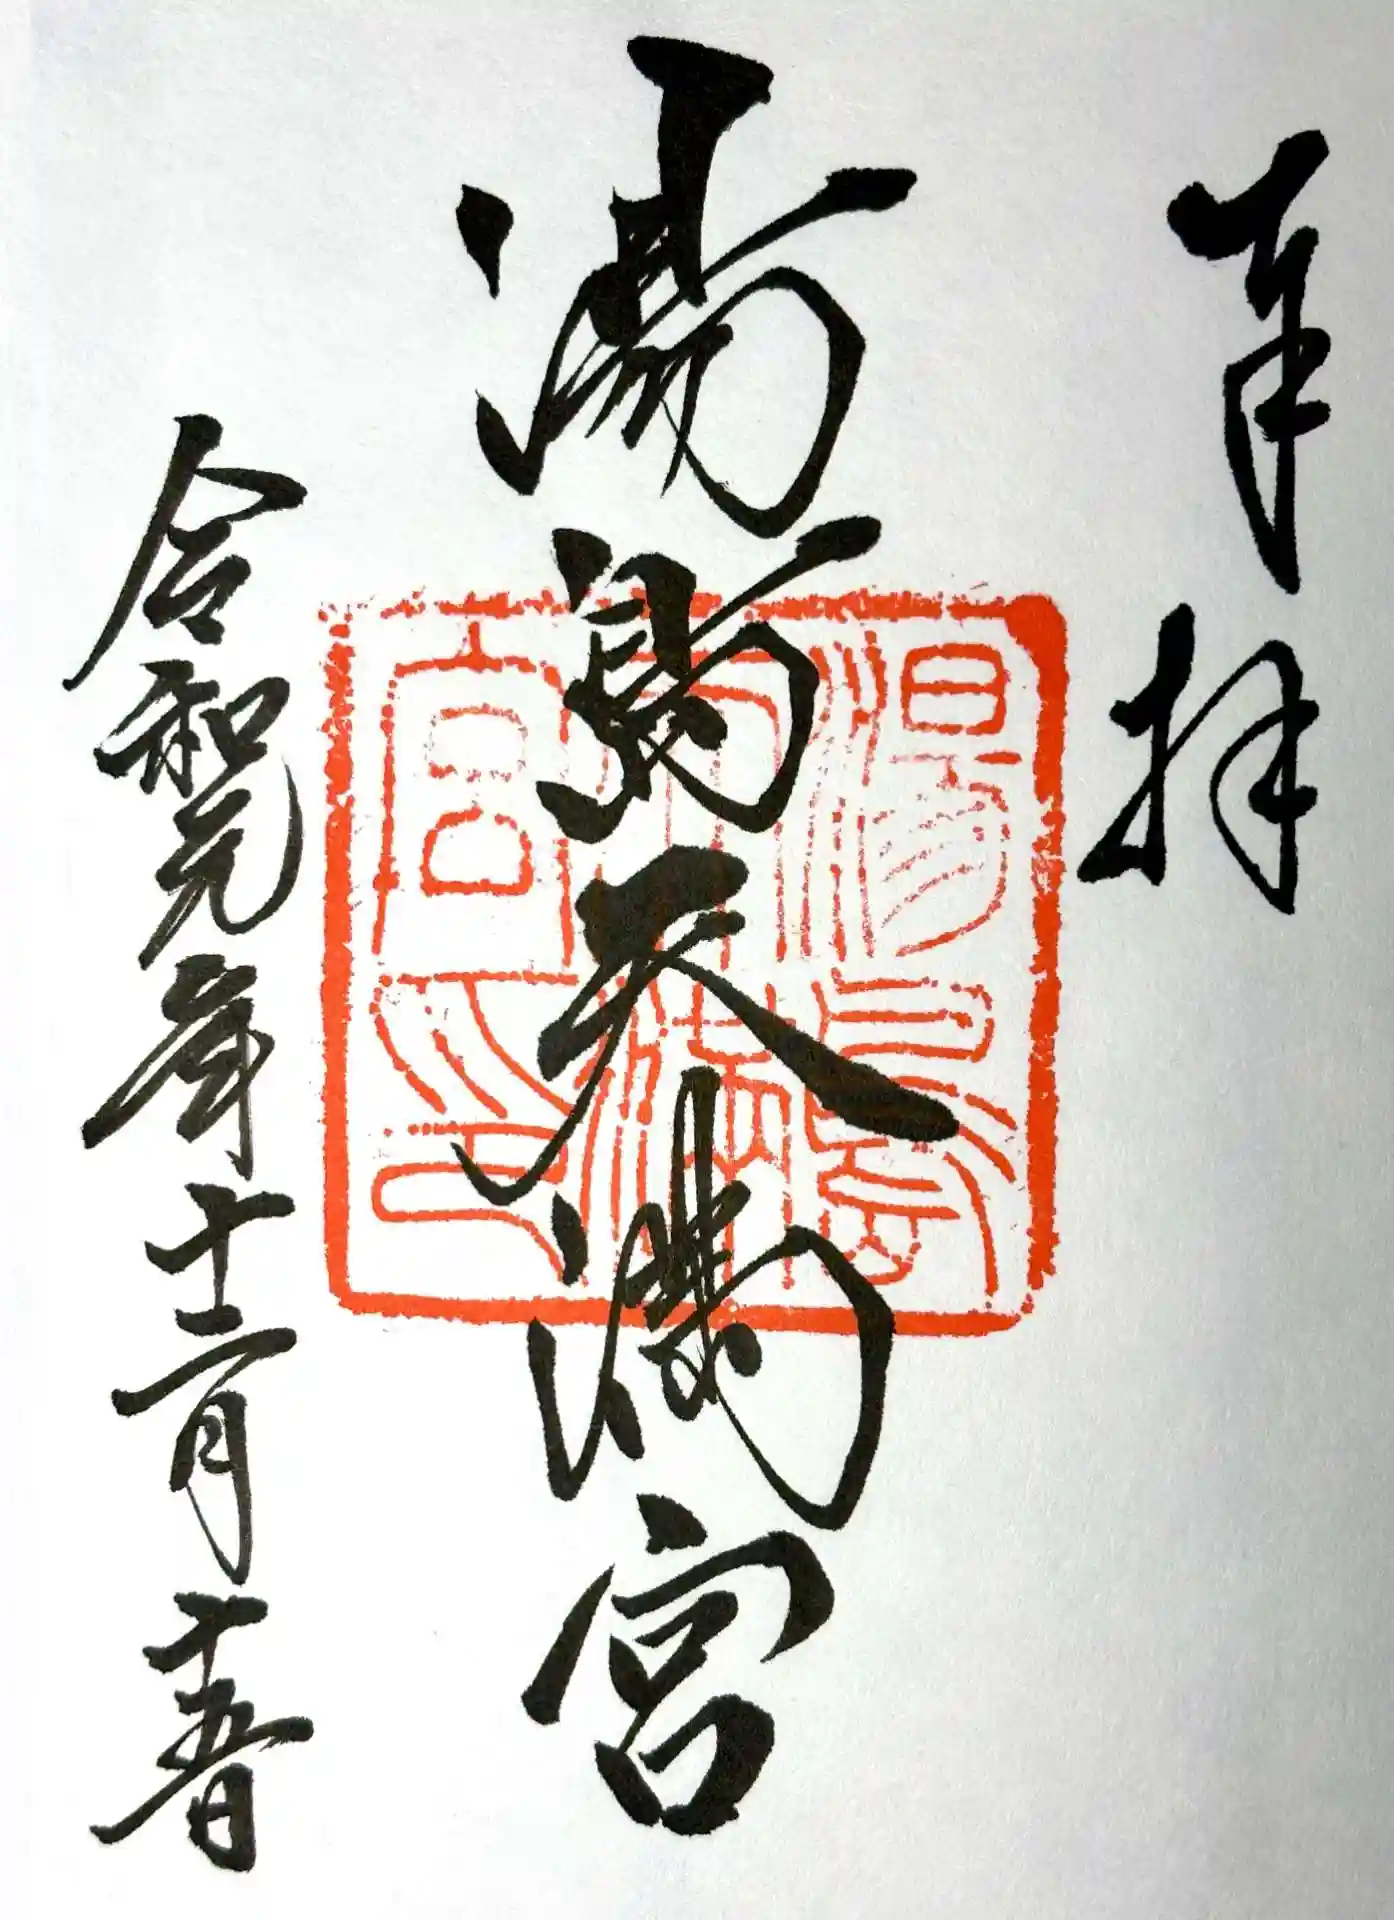 奉拝
湯島天満宮
湯島
天満
宮印
令和元年十二月十五日